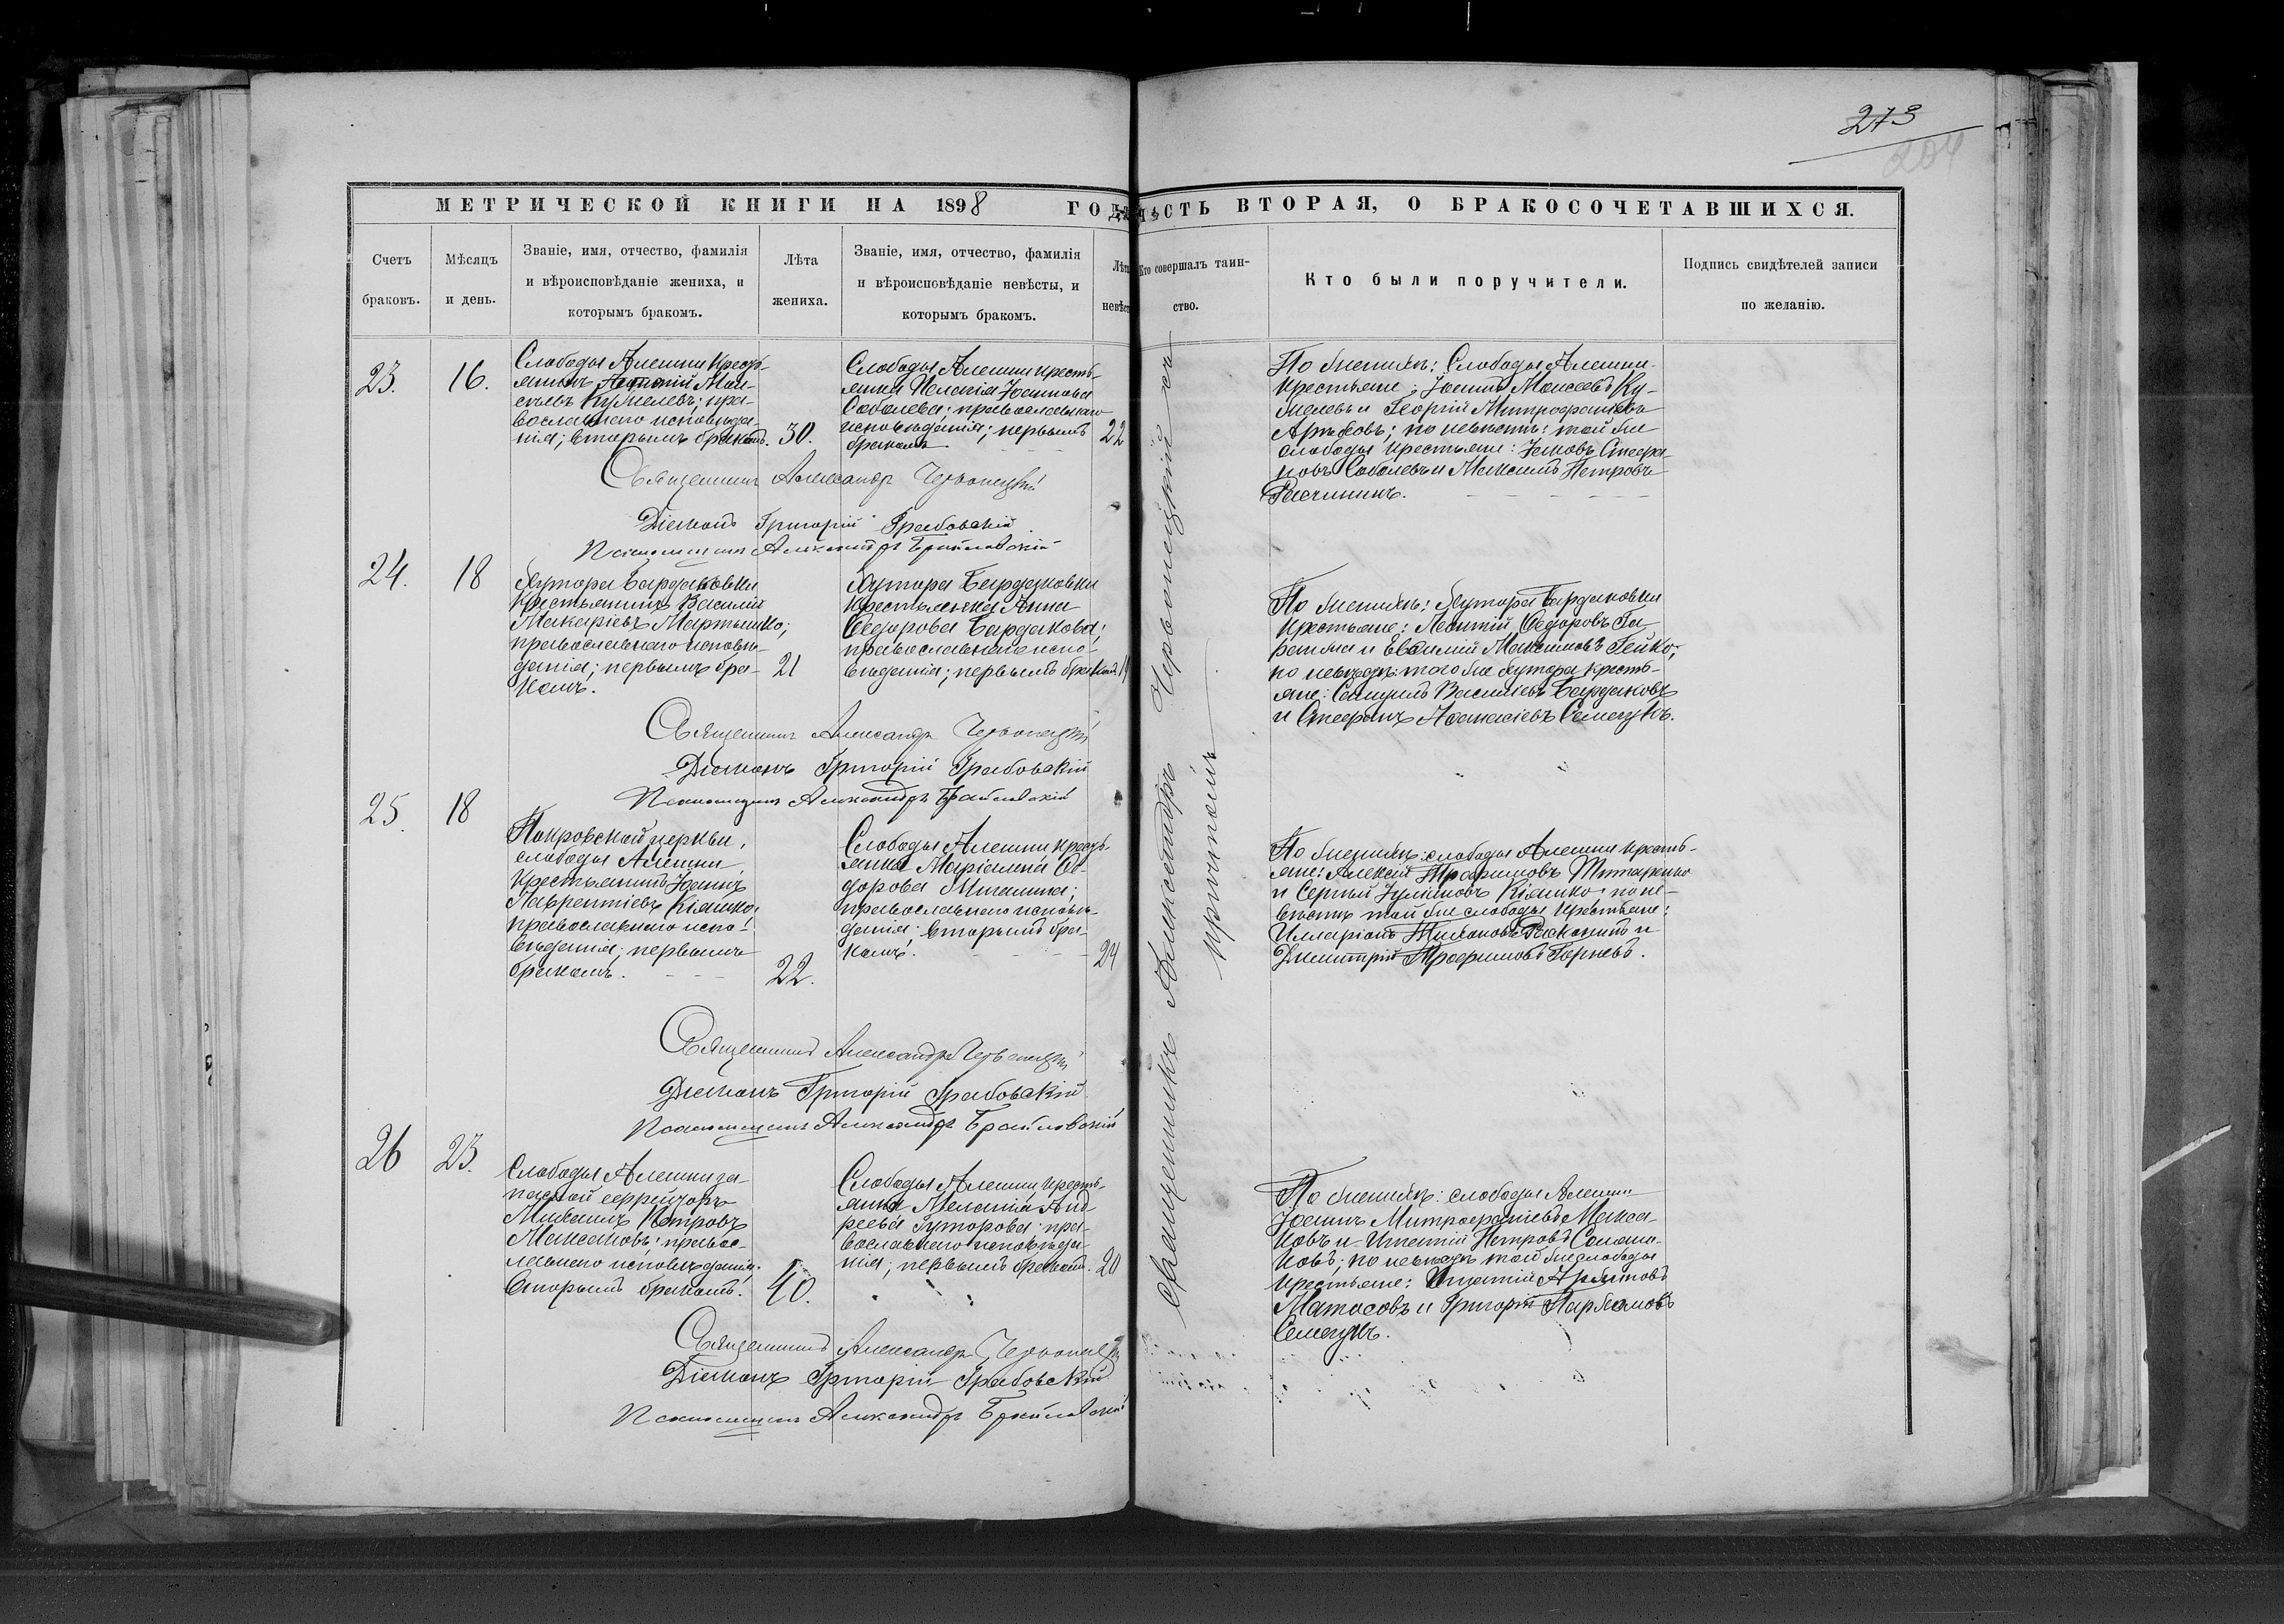 273
204
МЕТРИЧЕСКОЙ КНИГИ НА 1898 ГОДЪ ЧАСТЬ ВТОРАЯ, О БРАКОСОЧЕТАВШИХСЯ.
Счетъ
браковъ.
Мѣсяцъ
и день.
Званіе, имя, отчество, фамилія
и вѣроисповѣданіе жениха, и
которымъ бракомъ.
Лѣта
жениха.
Званіе, имя, отчество, фамилія
и вѣроисповѣданіе невѣсты, и
которымъ бракомъ.
Лѣта
невѣсты
Кто совершалъ таин-
ство.
Кто были поручители.
Подпись свидѣтелей записи
по желанію.
23.
16.
Слободы Алешки кресть-
янинъ Антоній Мои-
сѣевъ Кужелевъ; пра-
вославнаго исповѣда-
нія; вторымъ бракомъ.
30.
Слободы Алешки кресть-
янка Іоаннова
Соболева; православнаго
исповѣданія; первымъ
бракомъ
22
По женихѣ: Слободы Алешки
крестьяне: Іоаннъ Моисеевъ Ку-
желевъ и Георгій Митрофановъ
по невѣстѣ: той же
слободы крестьяне: Яковъ Стефа-
новъ Соболевъ и Максимъ Петровъ
Священникъ Александръ Червонецкій
Діаконъ Григорій Грабовскій
Псаломщикъ Александръ Браиловскій
24.
18
Хутора Бардаковки
крестьянинъ Василій
Макаріевъ Мартышко;
православнаго исповѣ-
данія; первымъ бра-
комъ.
21
Хутора Бардаковки
крестьянка Анна
Ѳедорова Бардакова;
православнаго испо-
вѣданія; первымъ бракомъ
По женихѣ: Хутора Бардаковки
крестьяне: Леонтій Ѳедоровъ Га-
и Евѳимій Максимовъ Гейко;
по невѣстѣ: того же хутора кресть-
яне: Самуилъ Василіевъ Бардаковъ
и Стефанъ Аѳанасіевъ Семегукъ.
Священникъ Александръ Червонецкій
Діаконъ Григорій Грабовскій
Псаломщикъ Александръ Браиловскій
25.
18
Покровской церкви,
слободы Алешки,
крестьянинъ Іоаннъ
Лаврентіевъ Кіяшко;
православнаго испо-
вѣданія; первымъ
бракомъ.
22.
Слободы Алешки кресть-
янка Маріамна Ѳе-
дорова
православнаго исповѣ-
данія; вторымъ бра-
комъ.
24
По женихѣ: слободы Алешки кресть-
яне: Алексій Трофимовъ Титаренко
и Сергій Іуліановъ Кіяшко; по не-
вѣстѣ той же слободы крестьяне:
Илларіонъ и
Димитрій Трофимовъ
Священникъ Александръ Червонецкій
Діаконъ Григорій Грабовскій
Псаломщикъ Александръ Браиловскій
26
23.
Слободы Алешки за-
пасной ефрейторъ
Михаилъ Петровъ
Максаковъ; правос-
лавнаго исповѣданія;
вторымъ бракомъ.
40.
Слободы Алешки кресть-
янка Меланія Анд-
реева Гуторова; пра-
вославнаго исповѣда-
нія; первымъ бракомъ.
20
По женихѣ: слободы Алешки
Іоаннъ Митрофаніевъ Макса-
ковъ и Игнатій Петровъ
по невѣстѣ той же слободы
крестьяне: Игнатій
Матасовъ и Григорій
Семегукъ.
Священникъ Александръ Червонецкій
Діаконъ Григорій Грабовскій
Псаломщикъ Александръ Браиловскій
Священникъ Александръ Червонецкій съ
причтомъ